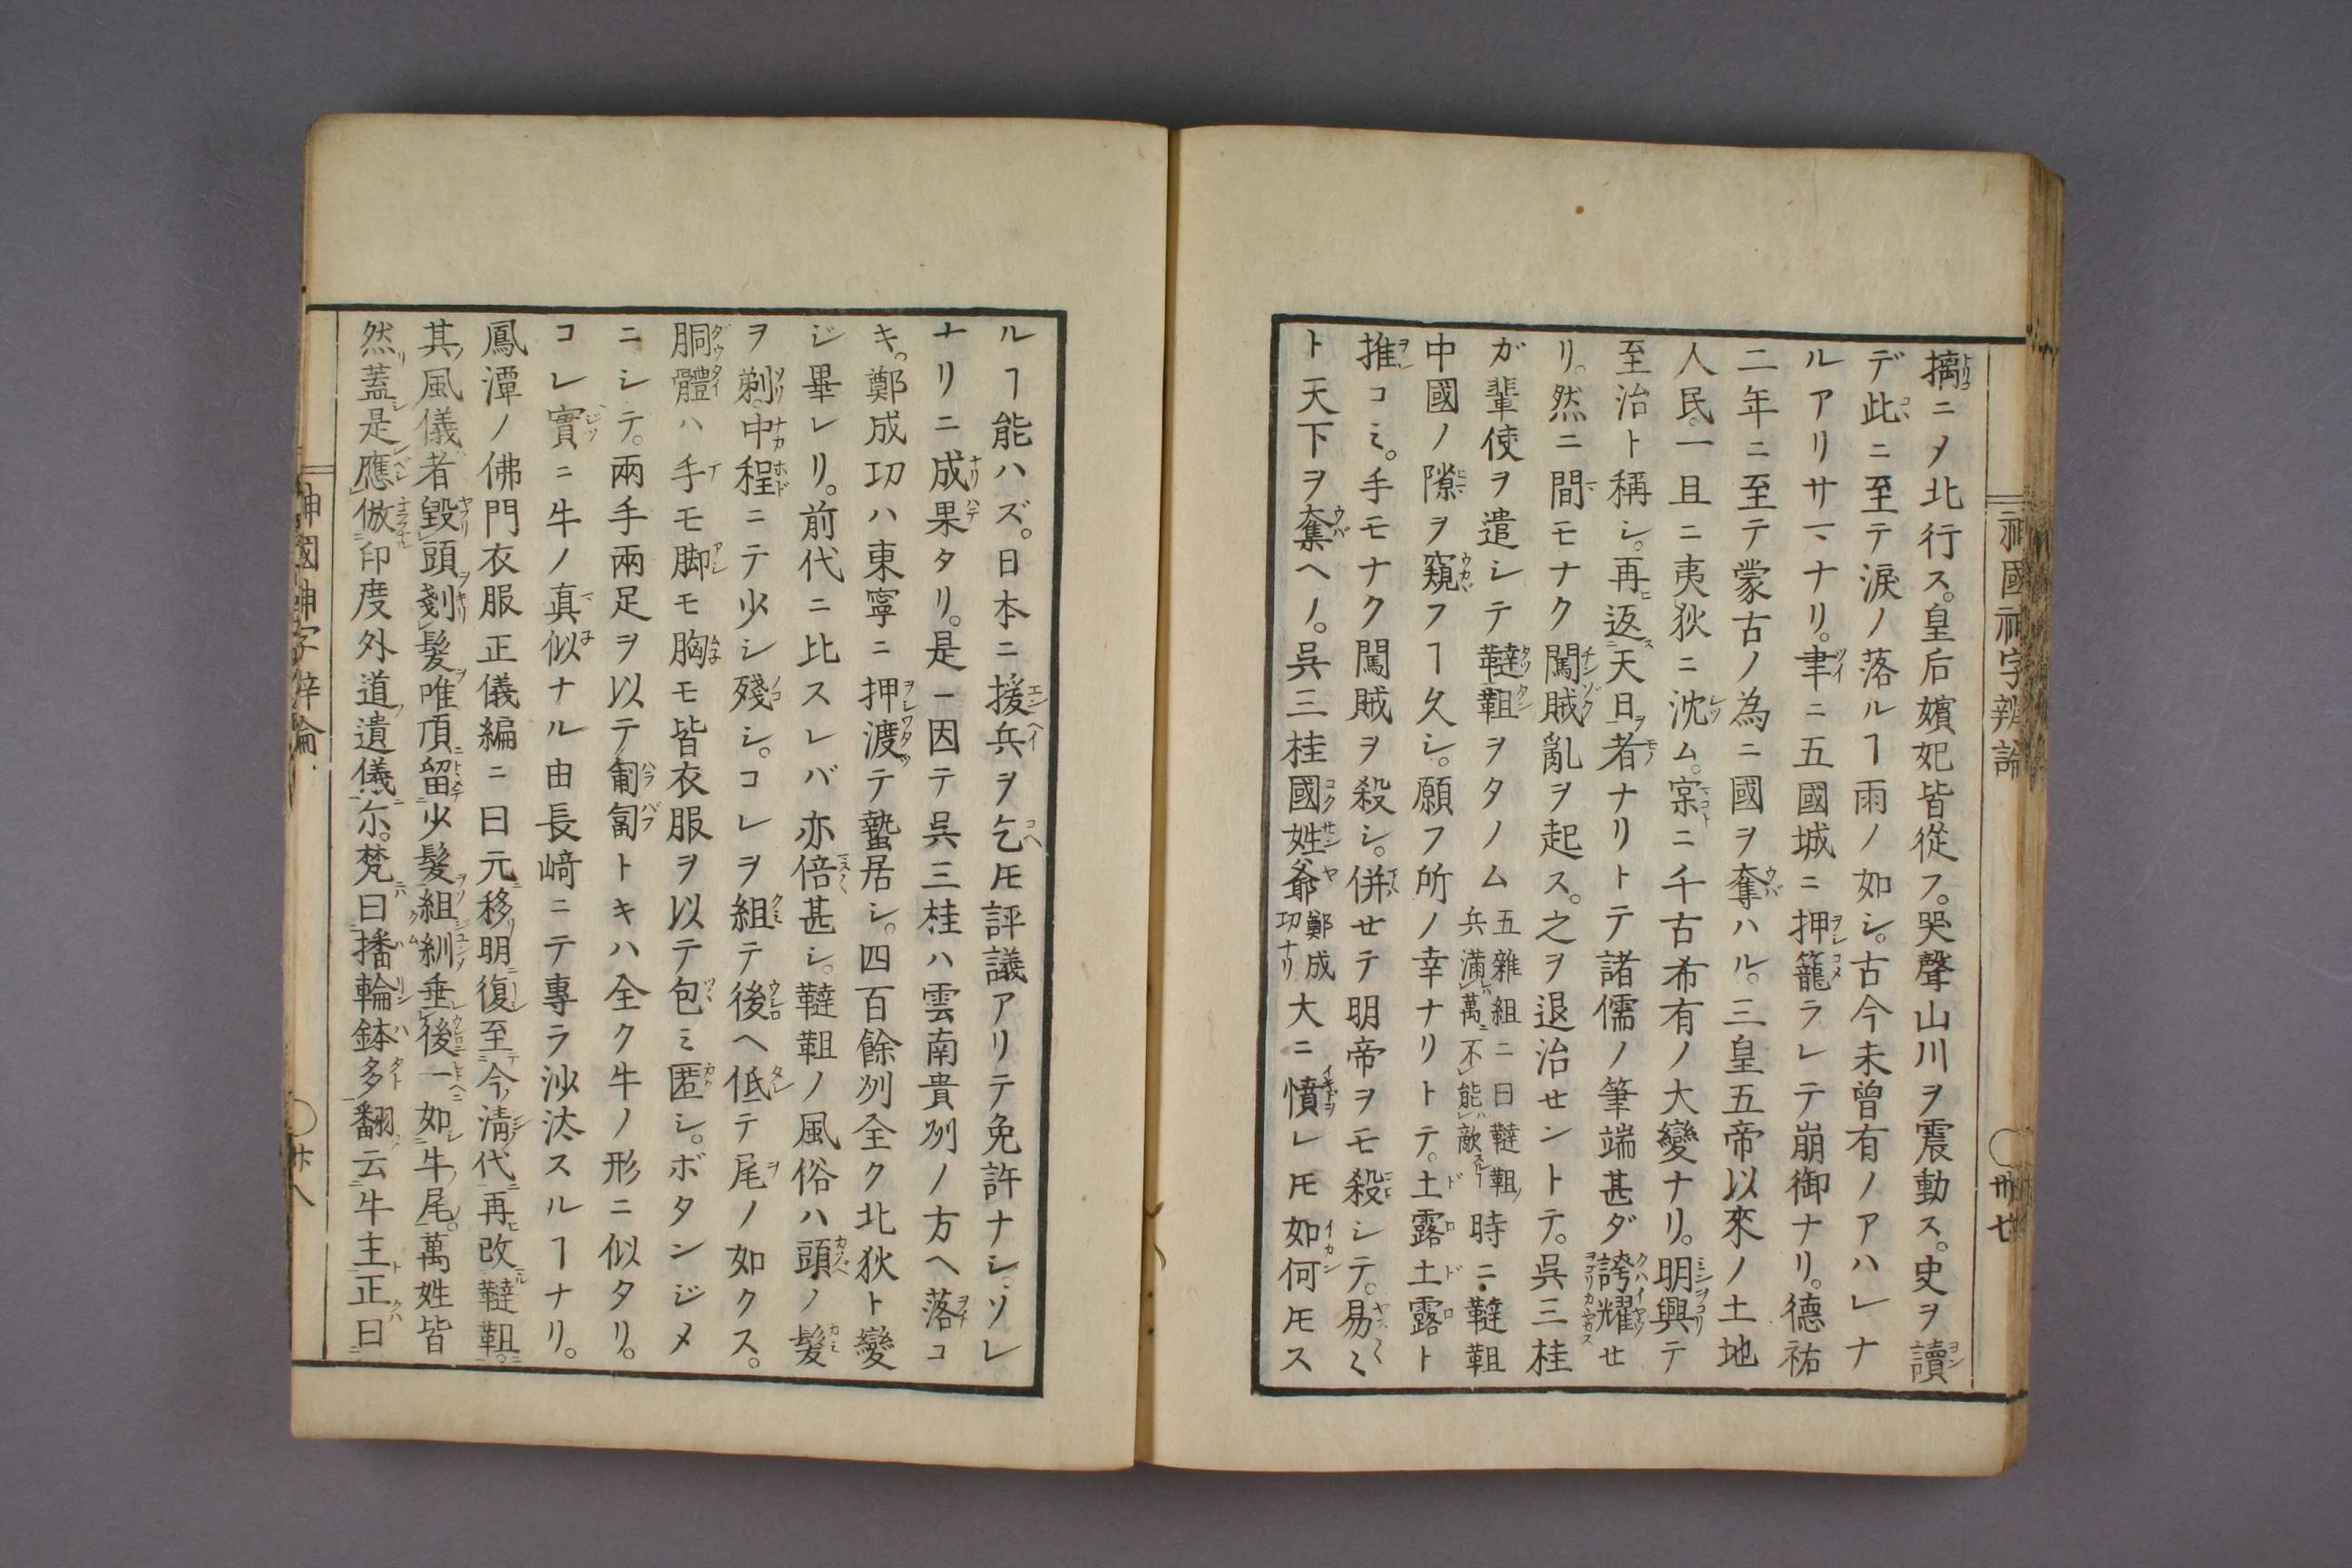 神國神字辨論
〇卅七
擒ニメ北行ス。皇后嬪妃皆從フ。哭聲山川ヲ震動ス。史ヲ讀
デ此ニ至テ淚ノ落ルヿ雨ノ如シ。古今未曾有ノアハレナ
ルアリサマナリ。聿ニ五國城ニ押籠ラレテ崩御ナリ。德祐
二年ニ至テ蒙古ノ為ニ國ヲ奪ハル。三皇五帝以來ノ土地
人民。一旦ニ夷狄ニ沈ム。寔ニ千古希有ノ大變ナリ。明興テ
至治ト稱シ。再返天日者ナリトテ諸儒ノ筆端甚ダ誇耀セ
リ。然ニ間モナク闖賊亂ヲ起ス。之ヲ退治セントテ。呉三桂
ガ輩使ヲ遣シテ韃靼ヲタノム五雜組ニ曰韃靼兵滿萬不能敵時ニ韃靼
中國ノ隙ヲ窺フヿ久シ。願フ所ノ幸ナリトテ。土露土露ト
推コミ。手モナク闖賊ヲ殺シ。併セテ明帝ヲモ殺シテ。易〻
ト天下ヲ奪ヘリ。呉三桂國姓爺鄭成功ナリ大ニ憤レ𪜈如何𪜈ス
ルヿ能ハズ。日本ニ援兵ヲ乞𪜈評議アリテ免許ナシ。ソレ
ナリニ成果タリ。是ニ因テ呉三桂ハ雲南貴州ノ方ヘ落コ
キ。鄭成功ハ東寧ニ押渡テ蟄居シ。四百餘州全ク北狄ト變
ジ畢レリ。前代ニ比スレバ亦倍甚シ。韃靼ノ風俗ハ頭ノ髮
ヲ剃。中程ニテ少シ殘シ。コレヲ組テ後ヘ低テ尾ノ如クス。
胴體ハ手モ脚モ胸モ皆衣服ヲ以テ包ミ匿シ。ボタンジメ
ニシテ。兩手兩足ヲ以テ匍匐トキハ全ク牛ノ形ニ似タリ。
コレ實ニ牛ノ真似ナル由長﨑ニテ專ラ沙汰スルヿナリ。
鳳潭ノ佛門衣服正儀編ニ曰元移明復至今清代再改韃靼。
其風儀者毀頭剗髮唯頂留少髮組紃垂後一如牛尾。萬姓皆
然蓋是應倣印度外道遺儀尓。梵曰播輪鉢多翻云牛主正曰
神國神字辨論
〇卅八